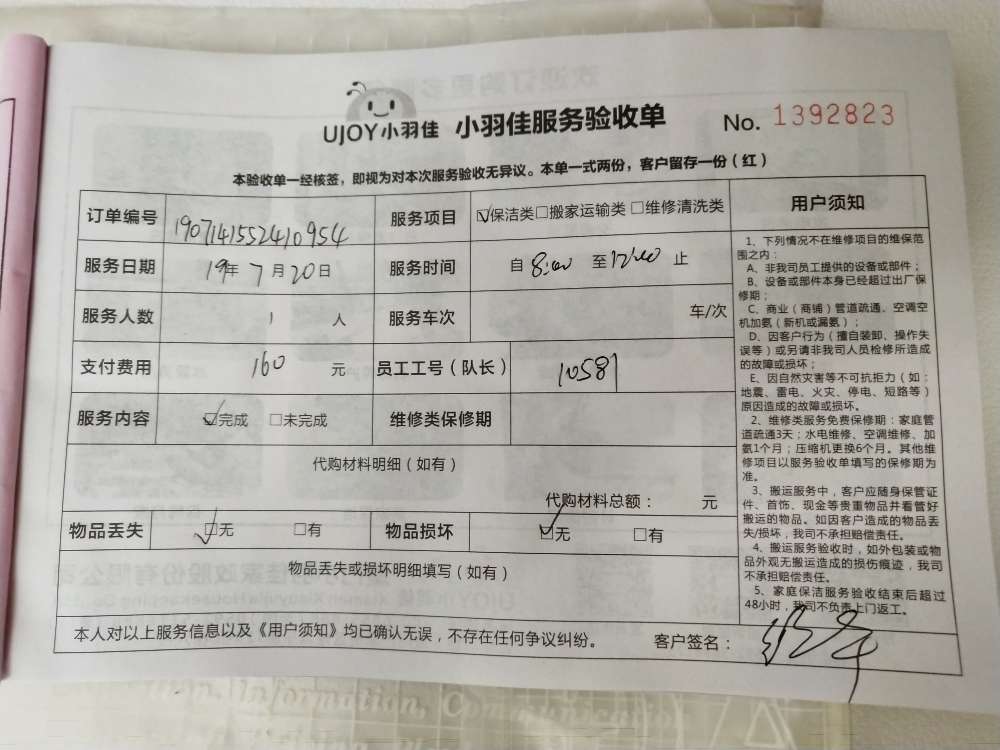 UJOY小羽佳 小羽佳服务验收单 No. 1392823
本验收单一经核签，即视为对本次服务验收无异议。本单一式两份，客户留存一份（红）
订单编号 1907141552410954 服务项目 ☑保洁类□搬家运输类□维修清洗类
服务日期 19年7月20日 服务时间 自 8:00 至 12:00 止
服务人数 1 人 服务车次 车/次
支付费用 160 元 员工工号（队长） 10581
服务内容 ☑完成 □未完成 维修类保修期
代购材料明细（如有）
代购材料总额： 元
物品丢失 ☑无 □有 物品损坏 ☑无 □有
物品丢失或损坏明细填写（如有）
本人对以上服务信息以及《用户须知》均已确认无误，不存在任何争议纠纷。 客户签名：
用户须知
1、下列情况不在维修项目的维保范
围之内：
A、非我司员工提供的设备或部件；
B、设备或部件本身已经超过出厂保
修期；
C、商业（商铺）管道疏通、空调空
机加氨（新机或漏氨）；
D、因客户行为（擅自装卸、操作失
误等）或另请非我司人员检修所造成
的故障或损坏；
E、因自然灾害等不可抗拒力（如：
地震、雷电、火灾、停电、短路等）
原因造成的故障或损坏。
2、维修类服务免费保修期：家庭管
道疏通3天；水电维修、空调维修、加
氨1个月；压缩机更换6个月。其他维
修项目以服务验收单填写的保修期为
准。
3、搬运服务中，客户应随身保管证
件、首饰、现金等贵重物品并看管好
搬运的物品。如因客户造成的物品丢
失/损坏，我司不承担赔偿责任。
4、搬运服务验收时，如外包装或物
品外观无搬运造成的损伤痕迹，我司
不承担赔偿责任。
5、家庭保洁服务验收结束后超过
48小时，我司不负责上门返工。